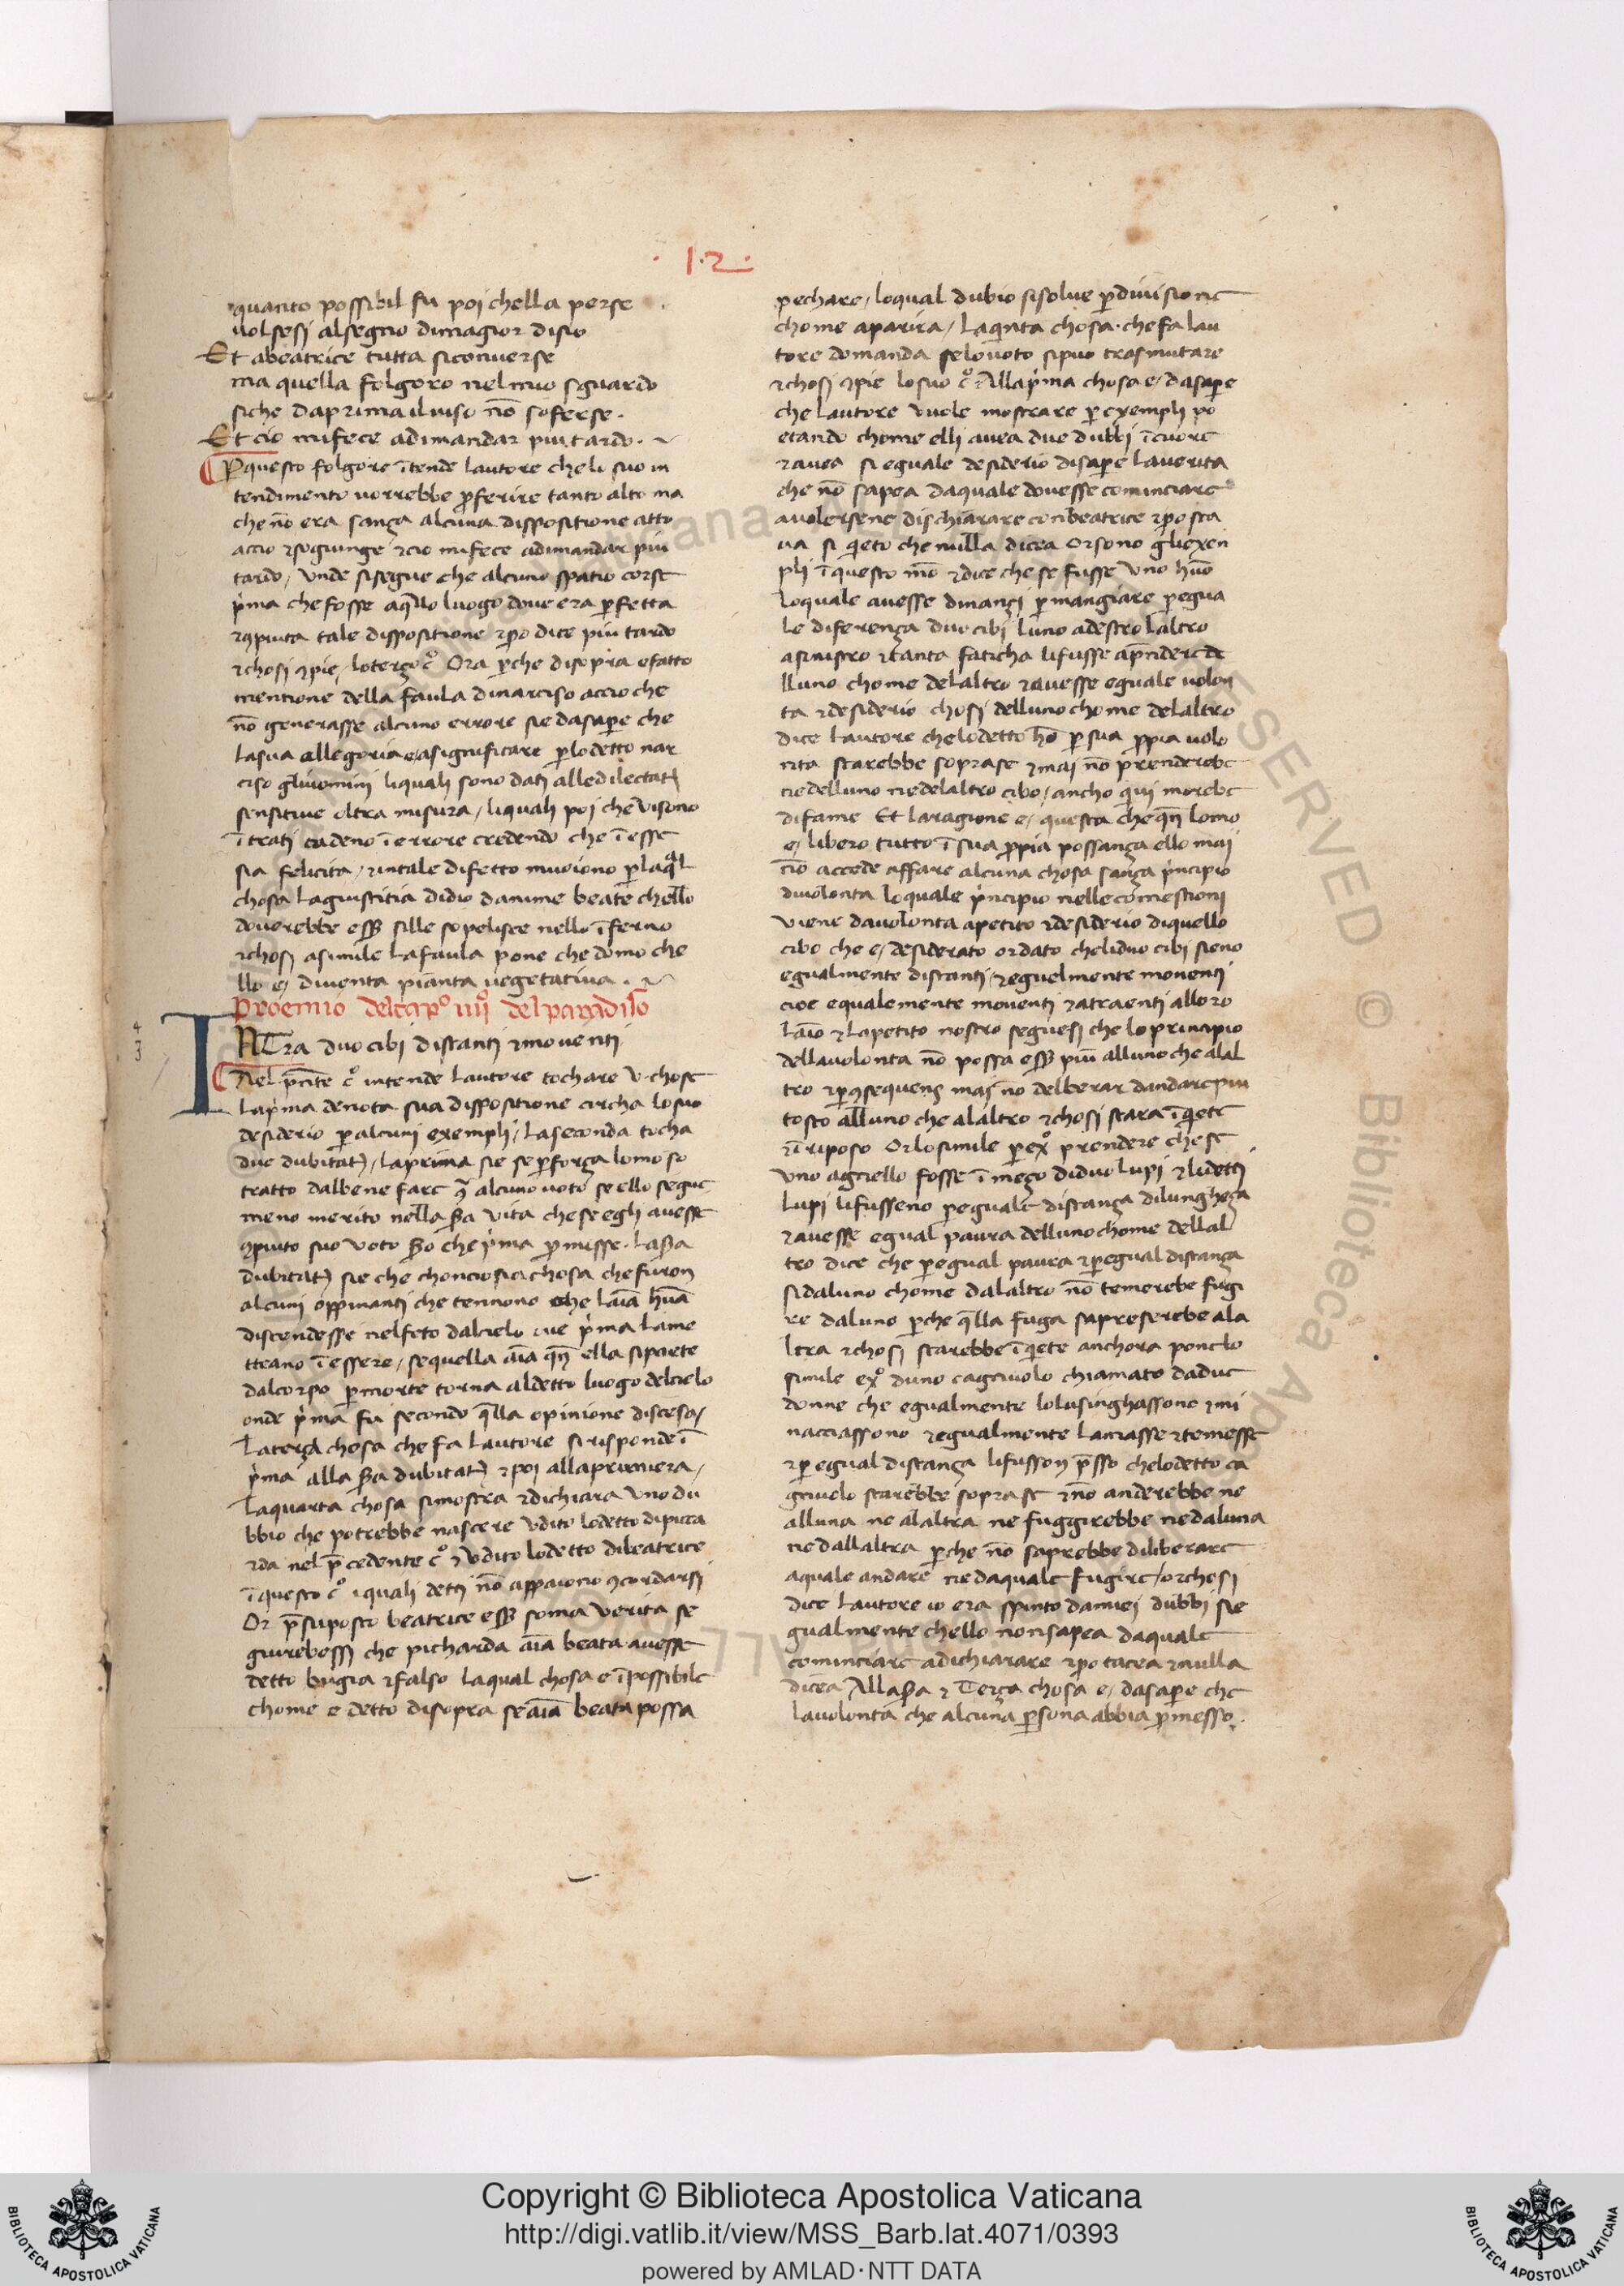 ·12·
quanto possibil fu poi chella perse
volsesi alsegno dimagior disio
Et abeatrice tutta siconverse
ma quella folgoro nelmio sguardo
siche daprima ilviso nō soferse.
Et cio mifece adimandar piu tardo.
Pquesto folgore ītende lautore cheli suo in
tendimento vorrebbe pferire tanto alto ma
che nō era sança alcuna dispositione atto
accio ⁊sogiunge ⁊cio mifece adimandar piu
tardo, unde sisegue che alcuno spatio corse
pima che fosse aqllo luogo dove era pfetta
⁊ꝯpiuta tale dispositione ⁊po dice piu tardo
⁊chosi ꝯpie, loterço c̊ Ora pche disopra efatto
mentione della favla dinarciso accio che
nō generasse alcuno errore sie dasape che
lasua allegoria easignificare plodetto nar
ciso gliuomini liquali sono dati alledilectatj
sensitive oltra misura, liquali poi che visono
ītrati cadeno ī errore credendo che ī esse
sia felicita, ⁊intale difetto muoiono plaql
chosa lagiustitia didio danime beate chello
doverebbe ess sille sopelisce nello īferno
⁊chosi asimile lafavla pone che domo che
llo e, diventa pianta vegetativa.
Proemio delcapo iiij̊ del paradiso
INTra duo cibi distanti ⁊moventi
Nel pnte c̊ intende lautore tochare v chose
lapima denota sua dispositione circha losuo
desiderio palcuni exempli, laseconda tocha
due dubitatj, laprima sie se pforça lomo so
tratto dalbene fare ꝯ alcuno voto se ello segue
meno merito nella sa vita che se egli avesse
ꝯpiuto suo voto so che pima pmisse. lasa
dubitatj sie che chonciosia chosa che furon
alcuni oppinanti che tennono che laīa huā
discendesse nelfeto dalcielo ive pima lame
tteano ī essere, sequella aīa qn ella siparte
dalcorpo pmorte torna aldetto luogo delcielo
onde pima fu secondo qlla opinione discesa,
laterça chosa che fa lautore si risponde ī
pima alla sa dubitatj ⁊poi allaprimiera,
laquarta chosa simostra ⁊dichiara uno du
bbio che potrebbe nascere udito lodetto dipicca
rda nel pcedente c̊ ⁊udito lodetto dibeatrice
ī questo c̊ iquali detti nō appaiono ꝯcordarsi
Or psuposto beatrice ess soma verita se
guirebessi che picharda aīa beata avesse
detto bugia ⁊falso laqual chosa e īpossibile
chome e detto disopra se aīa beata possa
pechare, loqual dubio sisolve pdivisione
chome aparira, laqinta chosa che fa lau
tore domanda selovoto sipuo trasmutare
⁊chosi ꝯpie losuo c̊. Allapima chosa e, dasape
che lautore vuole mostrare p exempli po
etando chome elli avea due dubbi īcuore
⁊avea si eguale desiderio disape laverita
che nō sapea daquale dovesse cominciare
avolersene dischiarare conbeatrice ⁊po sta
va si qieto che nulla dicea Or sono gliexen
pli ī questo mo ⁊dice che se fusse uno huo
loquale avesse dinançi pmangiare pegua
le diferença duo cibi luno adestro laltro
asinistro ⁊tanta faticha lifusse apndere de
lluno chome delaltro ⁊avesse eguale volon
ta ⁊desiderio chosi delluno chome delaltro
dice lautore chelodetto ho p sua ppia volo
nta starebbe soprase ⁊mai nō prenderebe
nedelluno nedelaltro cibo, ancho qivi morebe
difame Et laragione e, questa che qn lomo
e, libero tutto ī sua ppia possança ello mai
nō accede affare alcuna chosa sança pincipio
divolonta loquale pincipio nellecomestioni
viene davolonta apetito ⁊desiderio diquello
cibo che e, desiderato or dato cheliduo cibi sieno
egualmente distanti ⁊egualmente moventi
cioe equalemente moventi ⁊atraenti alloro
laīo ⁊lapetito nostro seguesi che lo principio
dellavolonta nō possa ess piu alluno che alal
tro ⁊pꝯsequens mai no delberar dandarepiu
tosto alluno che alaltro ⁊chosi stara īqiete
⁊ī riposo Or losimile pex̊ prendere che se
uno agnello fosse ī meço diduo lupi ⁊lidetti
lupi lifusseno peguale distança dilungheça
⁊avesse egual paura delluno chome dellal
tro dice che pegual paura ⁊pegual distança
sidaluno chome dalaltro nō temerebe fugi
re daluno pche qlla fuga sapreserebe ala
ltra ⁊chosi starebbe īqiete anchora ponelo
simile ex̊ duno cagnuolo chiamato dadue
donne che egualmente lolusinghassono ⁊mi
nacciassono ⁊egualmente lamasse ⁊temesse
⁊pegual distança lifusson psso chelodetto ca
gnuolo starebbe soprase ⁊nō anderebbe ne
alluna ne alaltra ne fuggirebbe nedaluna
nedallaltra pche nō saprebbe diliberare
aquale andare nedaquale fugire, orchosi
dice lautore io era spinto damiei dubbi sie
gualmente chello nonsapea daquale
cominciare adichiarare ⁊po tacea ⁊nulla
dicea Allasa ⁊ Terça chosa e, dasape che
lavolonta che alcuna psona abbia pmesso.
4
3
Copyright © Biblioteca Apostolica Vaticana
http://digi.vatlib.it/view/MSS_Barb.lat.4071/0393
powered by AMLAD·NTT DATA
BIBLIOTECA APOSTOLICA VATICANA
BIBLIOTECA APOSTOLICA VATICANA